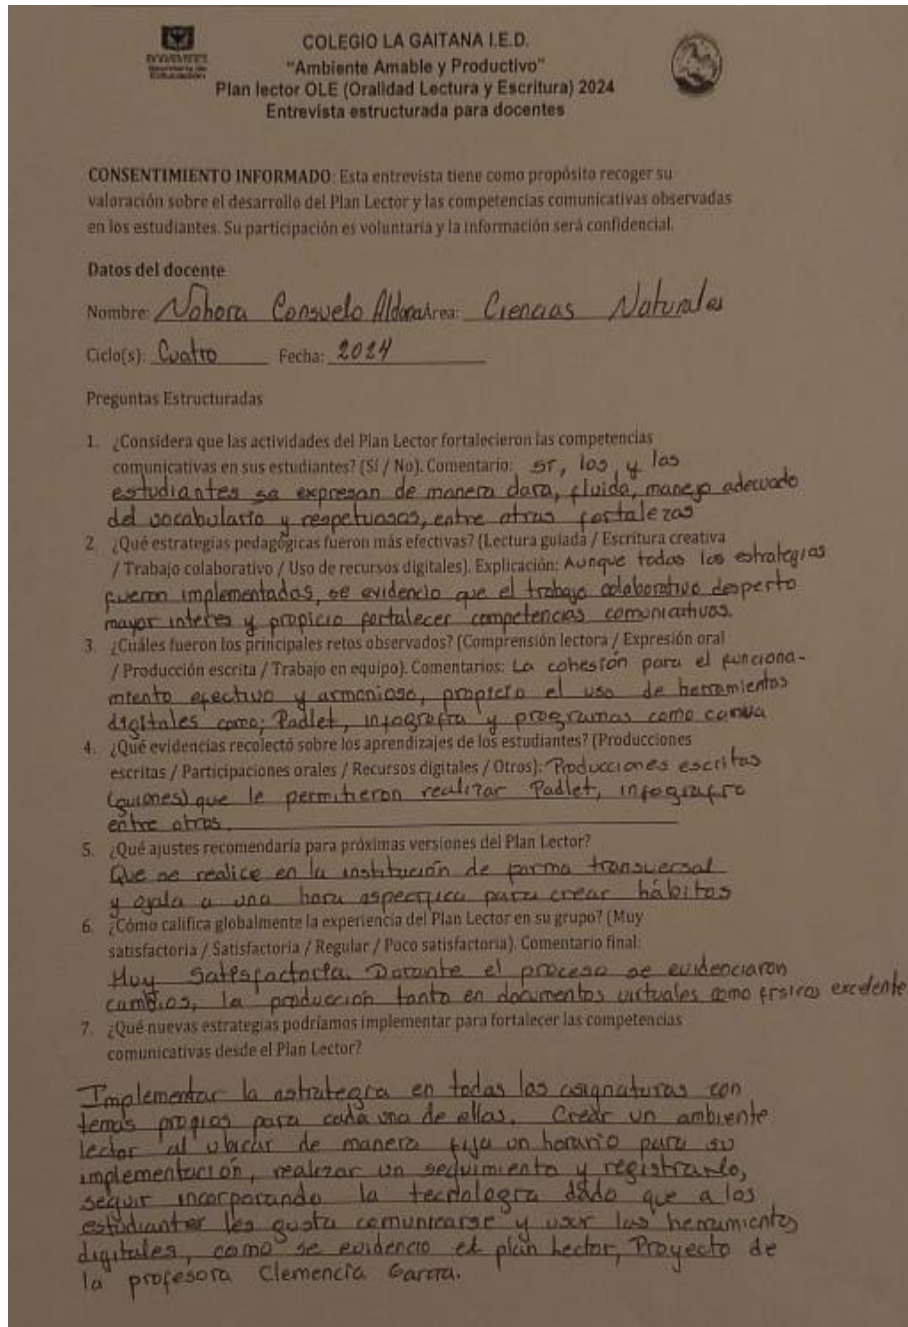 COLEGIO LA GAITANA I.E.D.
"Ambiente Amable y Productivo"
Plan lector OLE (Oralidad Lectura y Escritura) 2024
Entrevista estructurada para docentes
CONSENTIMIENTO INFORMADO: Esta entrevista tiene como propósito recoger su
valoración sobre el desarrollo del Plan Lector y las competencias comunicativas observadas
en los estudiantes. Su participación es voluntaria y la información será confidencial.
Datos del docente
Nombre: Nohora Consuelo Aldana Área: Ciencias Naturales
Ciclo(s): Cuatro Fecha: 2024
Preguntas Estructuradas
1. ¿Considera que las actividades del Plan Lector fortalecieron las competencias
comunicativas en sus estudiantes? (Sí / No). Comentario: sí, los y las
estudiantes se expresan de manera clara, fluida, manejo adecuado
del vocabulario y respetuosos, entre otras fortalezas
2. ¿Qué estrategias pedagógicas fueron más efectivas? (Lectura guiada / Escritura creativa
/ Trabajo colaborativo / Uso de recursos digitales). Explicación: Aunque todas las estrategias
fueron implementadas, se evidencio que el trabajo colaborativo desperto
mayor interes y propicio fortalecer competencias comunicativas.
3. ¿Cuáles fueron los principales retos observados? (Comprensión lectora / Expresión oral
/ Producción escrita / Trabajo en equipo). Comentarios: La cohesión para el funciona-
miento efectivo y armonioso, propicio el uso de herramientas
digitales como; Padlet, infografía y programas como canva
4. ¿Qué evidencias recolectó sobre los aprendizajes de los estudiantes? (Producciones
escritas / Participaciones orales / Recursos digitales / Otros): Producciones escritas
(guiones) que le permitieron realizar Padlet, infografía
entre otros.
5. ¿Qué ajustes recomendaría para próximas versiones del Plan Lector?
Que se realice en la institución de forma transversal
y ojala a una hora especifica para crear hábitos
6. ¿Cómo califica globalmente la experiencia del Plan Lector en su grupo? (Muy
satisfactoria / Satisfactoria / Regular / Poco satisfactoria). Comentario final:
Muy Satisfactoria. Durante el proceso se evidenciaron
cambios, la producción tanto en documentos virtuales como físicos excelente
7. ¿Qué nuevas estrategias podríamos implementar para fortalecer las competencias
comunicativas desde el Plan Lector?
Implementar la estrategia en todas las asignaturas con
temas propios para cada una de ellas. Crear un ambiente
lector al ubicar de manera fija un horario para su
implementación, realizar un seguimiento y registrarlo,
seguir incorporando la tecnología dado que a los
estudiantes les gusta comunicarse y usar las herramientas
digitales, como se evidencio el plan lector, Proyecto de
la profesora Clemencia García.